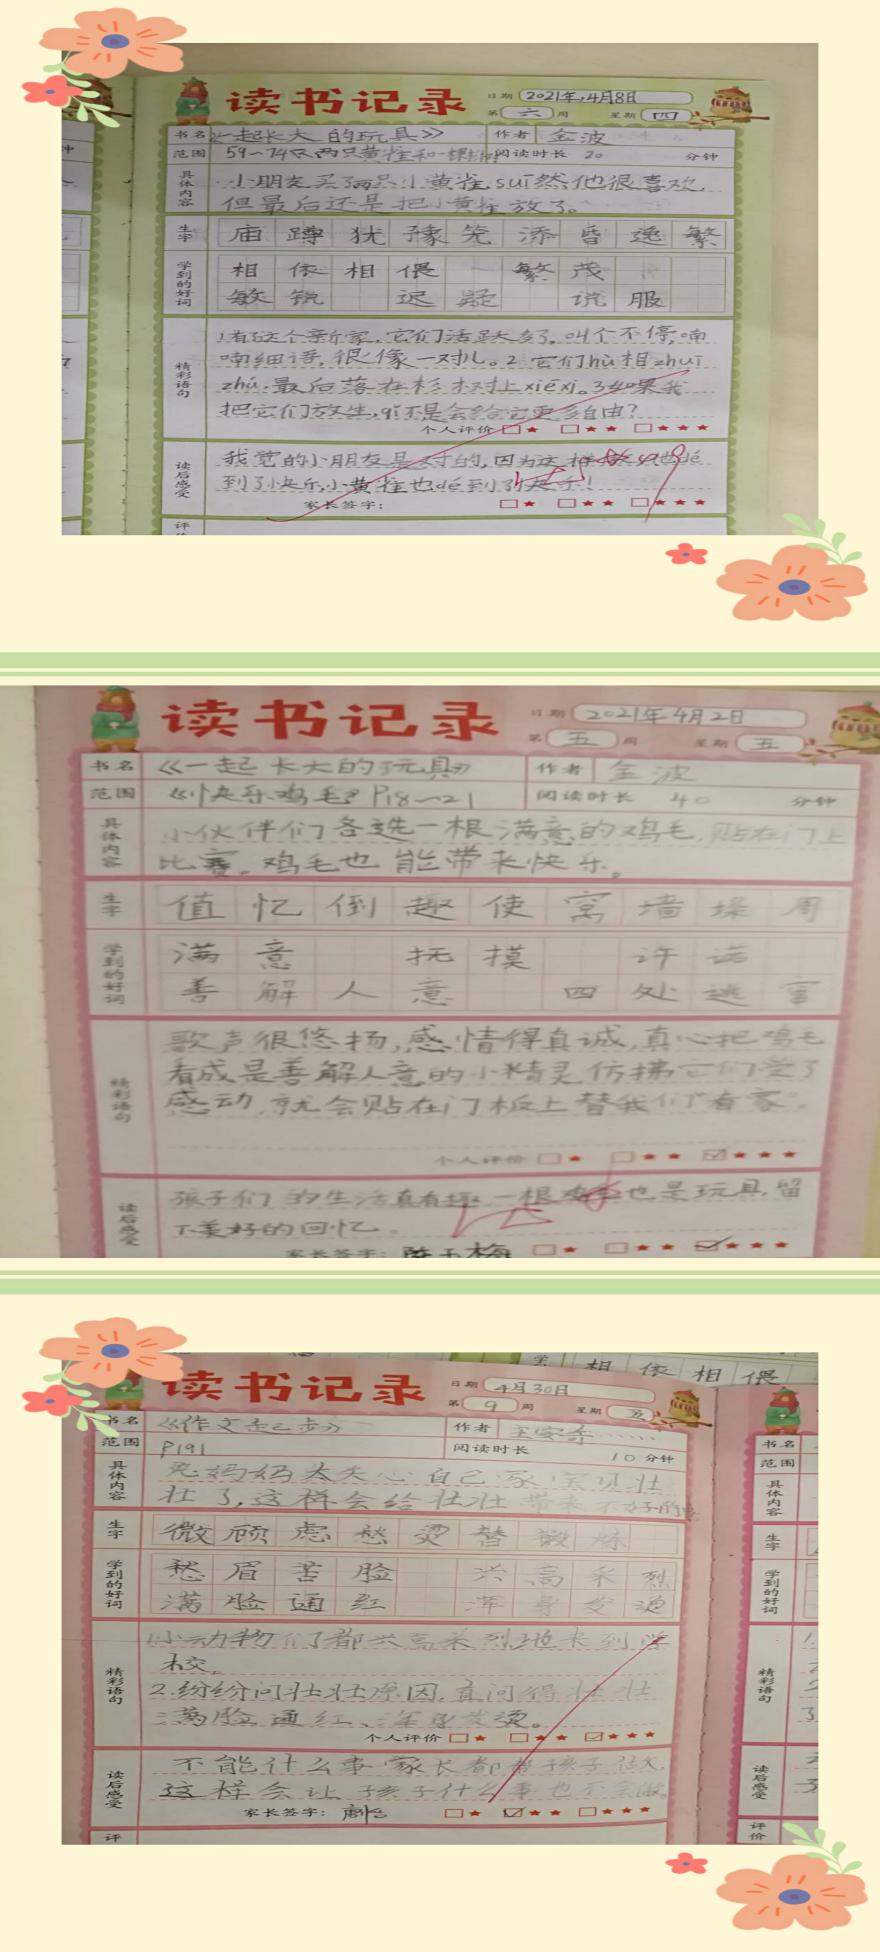 读书记录
日期 2021年4月8日
第 六 周 星期 四
书名 《一起长大的玩具》 作者 金波
范围 59~74 《两只黄雀和一棵 阅读时长 20 分钟
具体内容 小朋友买了两只小黄雀,suī然他很喜欢,
但最后还是把小黄雀放了。
生字 庙 蹲 犹 豫 凳 添 昏 逸 繁
学到的好词 相依相偎 繁茂
敏锐 迟疑 说服
精彩语句 1.有了这个新家,它们活跃多了,叫个不停,喃
喃细语,很像一对儿。2.它们hù相zhuī
zhú,最后落在杉木树上xiēxi。3如果我
把它们放生,qǐ不是会给它更多自由?
个人评价 ★ ★★ ★★★
读后感受 我觉的小朋友是对的,因为这样做他dé
到了快乐,小黄雀也dé到了快乐!
家长签字: ★ ★★ ★★★
评
读书记录
日期 2021年4月2日
第 五 周 星期 五
书名 《一起长大的玩具》 作者 金波
范围 《快乐鸡毛》P18~21 阅读时长 40 分钟
具体内容 小伙伴们各选一根满意的鸡毛,贴在门上
比赛。鸡毛也能带来快乐。
生字 值 忆 倒 趣 使 窝 墙 操 周
学到的好词 满意 抚摸 许诺
善解人意 四处逃窜
精彩语句 歌声很悠扬,感情得真诚,真心把鸡毛
看成是善解人意的小精灵,仿拂它们受了
感动,就会贴在门板上替我们“看家”。
个人评价 ★ ★★ ★★★
读后感受 孩子们的生活真有趣,一根鸡毛也是玩具,留
下美好的回忆。
家长签字: 陈玉梅 ★ ★★ ★★★
相依相偎
读书记录
日期 4月30日
第 9 周 星期 五
书名 《作文起步》 作者
范围 P191 阅读时长 10 分钟
具体内容 兔妈妈太关心自己家宝贝壮
壮了,这样会给壮壮带来不好的
生字 微 顾 虑 愁 烫 替 锻 炼
学到的好词 愁眉苦脸 兴高采烈
满脸通红 浑身发烫
精彩语句 1.小动物们了都兴高采烈地来到学
校。
2.纷纷问壮壮原因,直问得壮壮
满脸通红、浑身发烫。
个人评价 ★ ★★ ★★★
读后感受 不能什么事家长都替孩子做,
这样会让孩子什么事也不会做。
家长签字: ★ ★★ ★★★
评
书名
范围
具体内容
生字
学到的好词
精彩语句
读后感受
评价